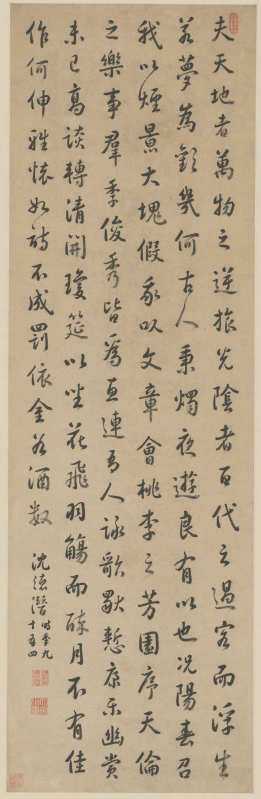 夫天地者萬物之逆旅光陰者百代之過客而浮生
若夢為歡幾何古人秉燭夜遊良有以也況陽春召
我以煙景大塊假我以文章會桃李之芳園序天倫
之樂事羣季俊秀皆為惠連吾人詠歌獨慙康樂幽賞
未已高談轉清開瓊筵以坐花飛羽觴而醉月不有佳
作何伸雅懷如詩不成罰依金谷酒數
沈德潛
時年九
十有四